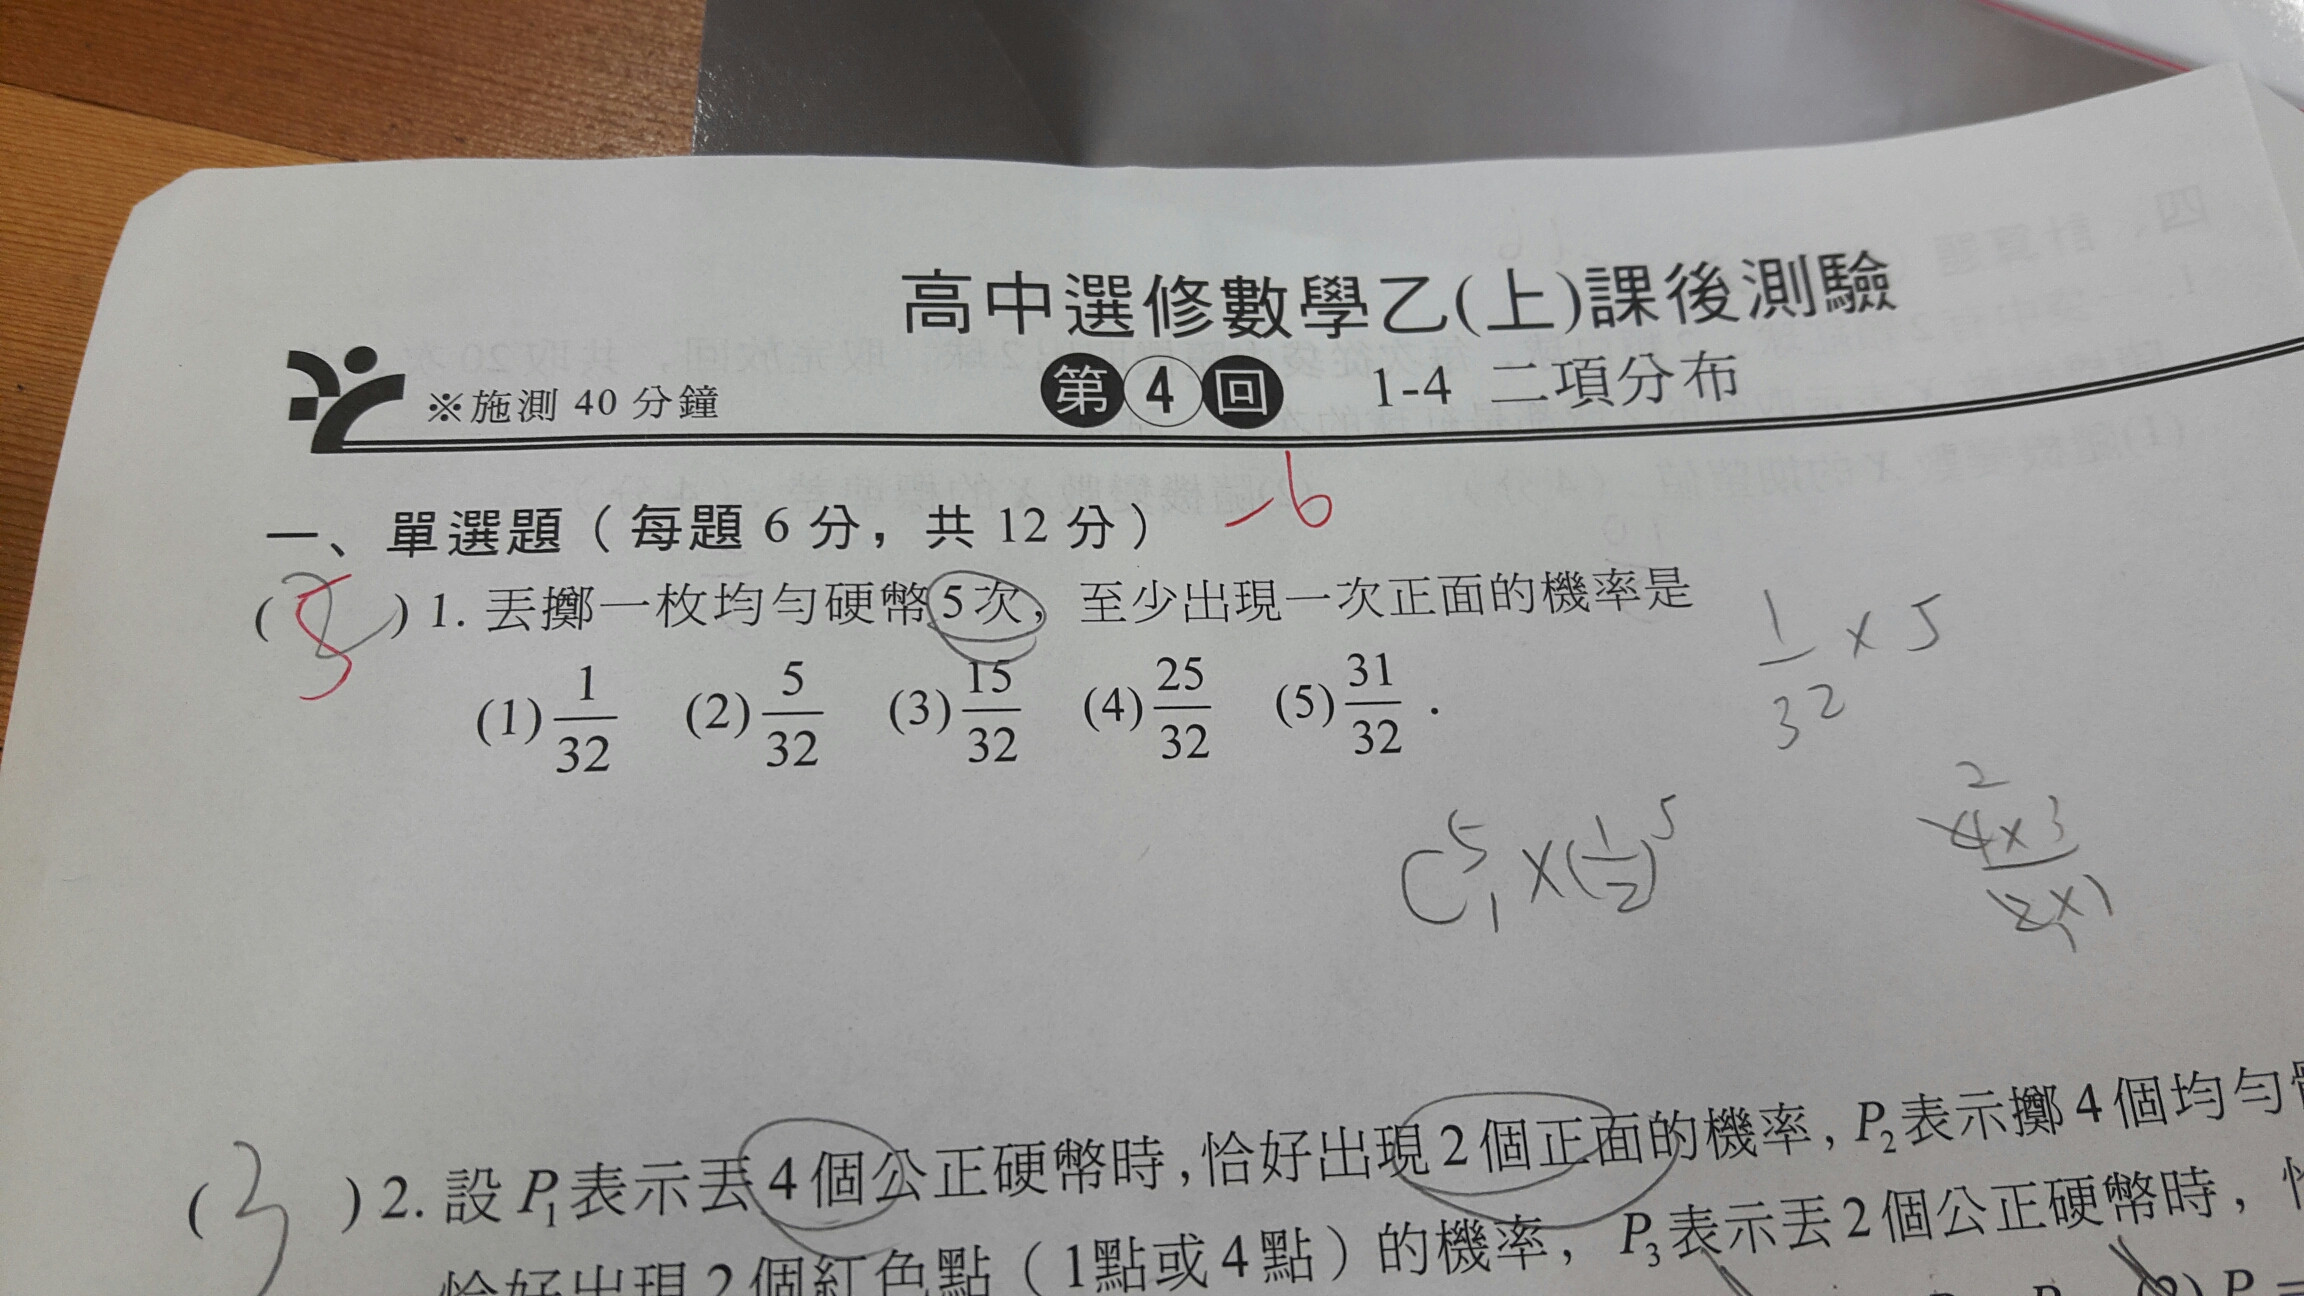 高中選修數學乙(上)課後測驗
※施測 40 分鐘
第 4 回 1-4 二項分布
-6
一、單選題（每題 6 分，共 12 分）
( 2 5 ) 1. 丟擲一枚均勻硬幣 5 次，至少出現一次正面的機率是
(1) 1/32 (2) 5/32 (3) 15/32 (4) 25/32 (5) 31/32 .
1/32 × 5
C⁵₁ × (1/2)⁵
2
4×3
2×1
( 3 ) 2. 設 P₁ 表示丟 4 個公正硬幣時,恰好出現 2 個正面的機率, P₂ 表示擲 4 個均勻
恰好出現 2 個紅色點（1點或4點）的機率， P₃ 表示丟 2 個公正硬幣時，